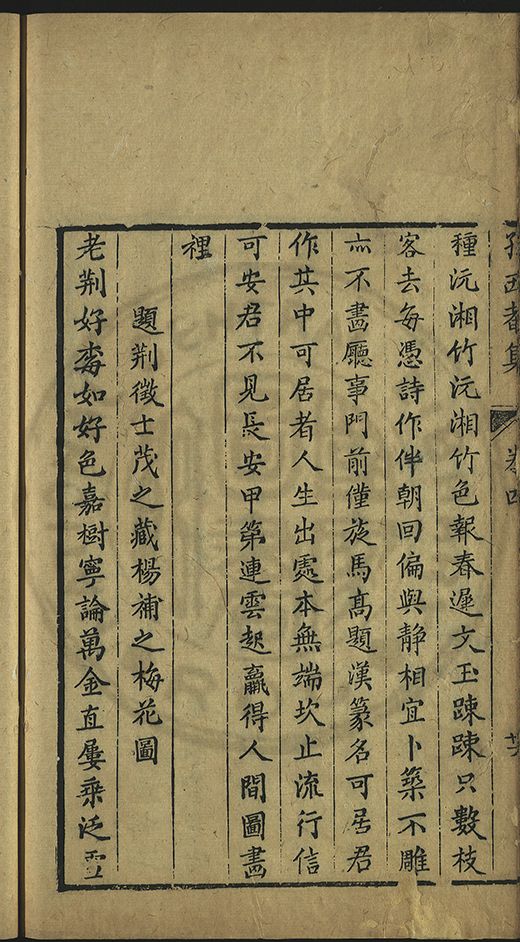 孫西菴集
卷四
種沅湘竹沅湘竹色報春遲文玉踈踈只數枝
客去每憑詩作伴朝回偏與静相宜卜築不雕
亦不畵廳事門前僅旋馬髙題漢篆名可居君
作其中可居者人生出處本無端坎止流行信
可安君不見長安甲第連雲起贏得人間圖畵
裡
題荆徵士茂之藏楊補之梅花圖
老荆好梅如好色嘉樹寧論萬金直屢乗泛雪